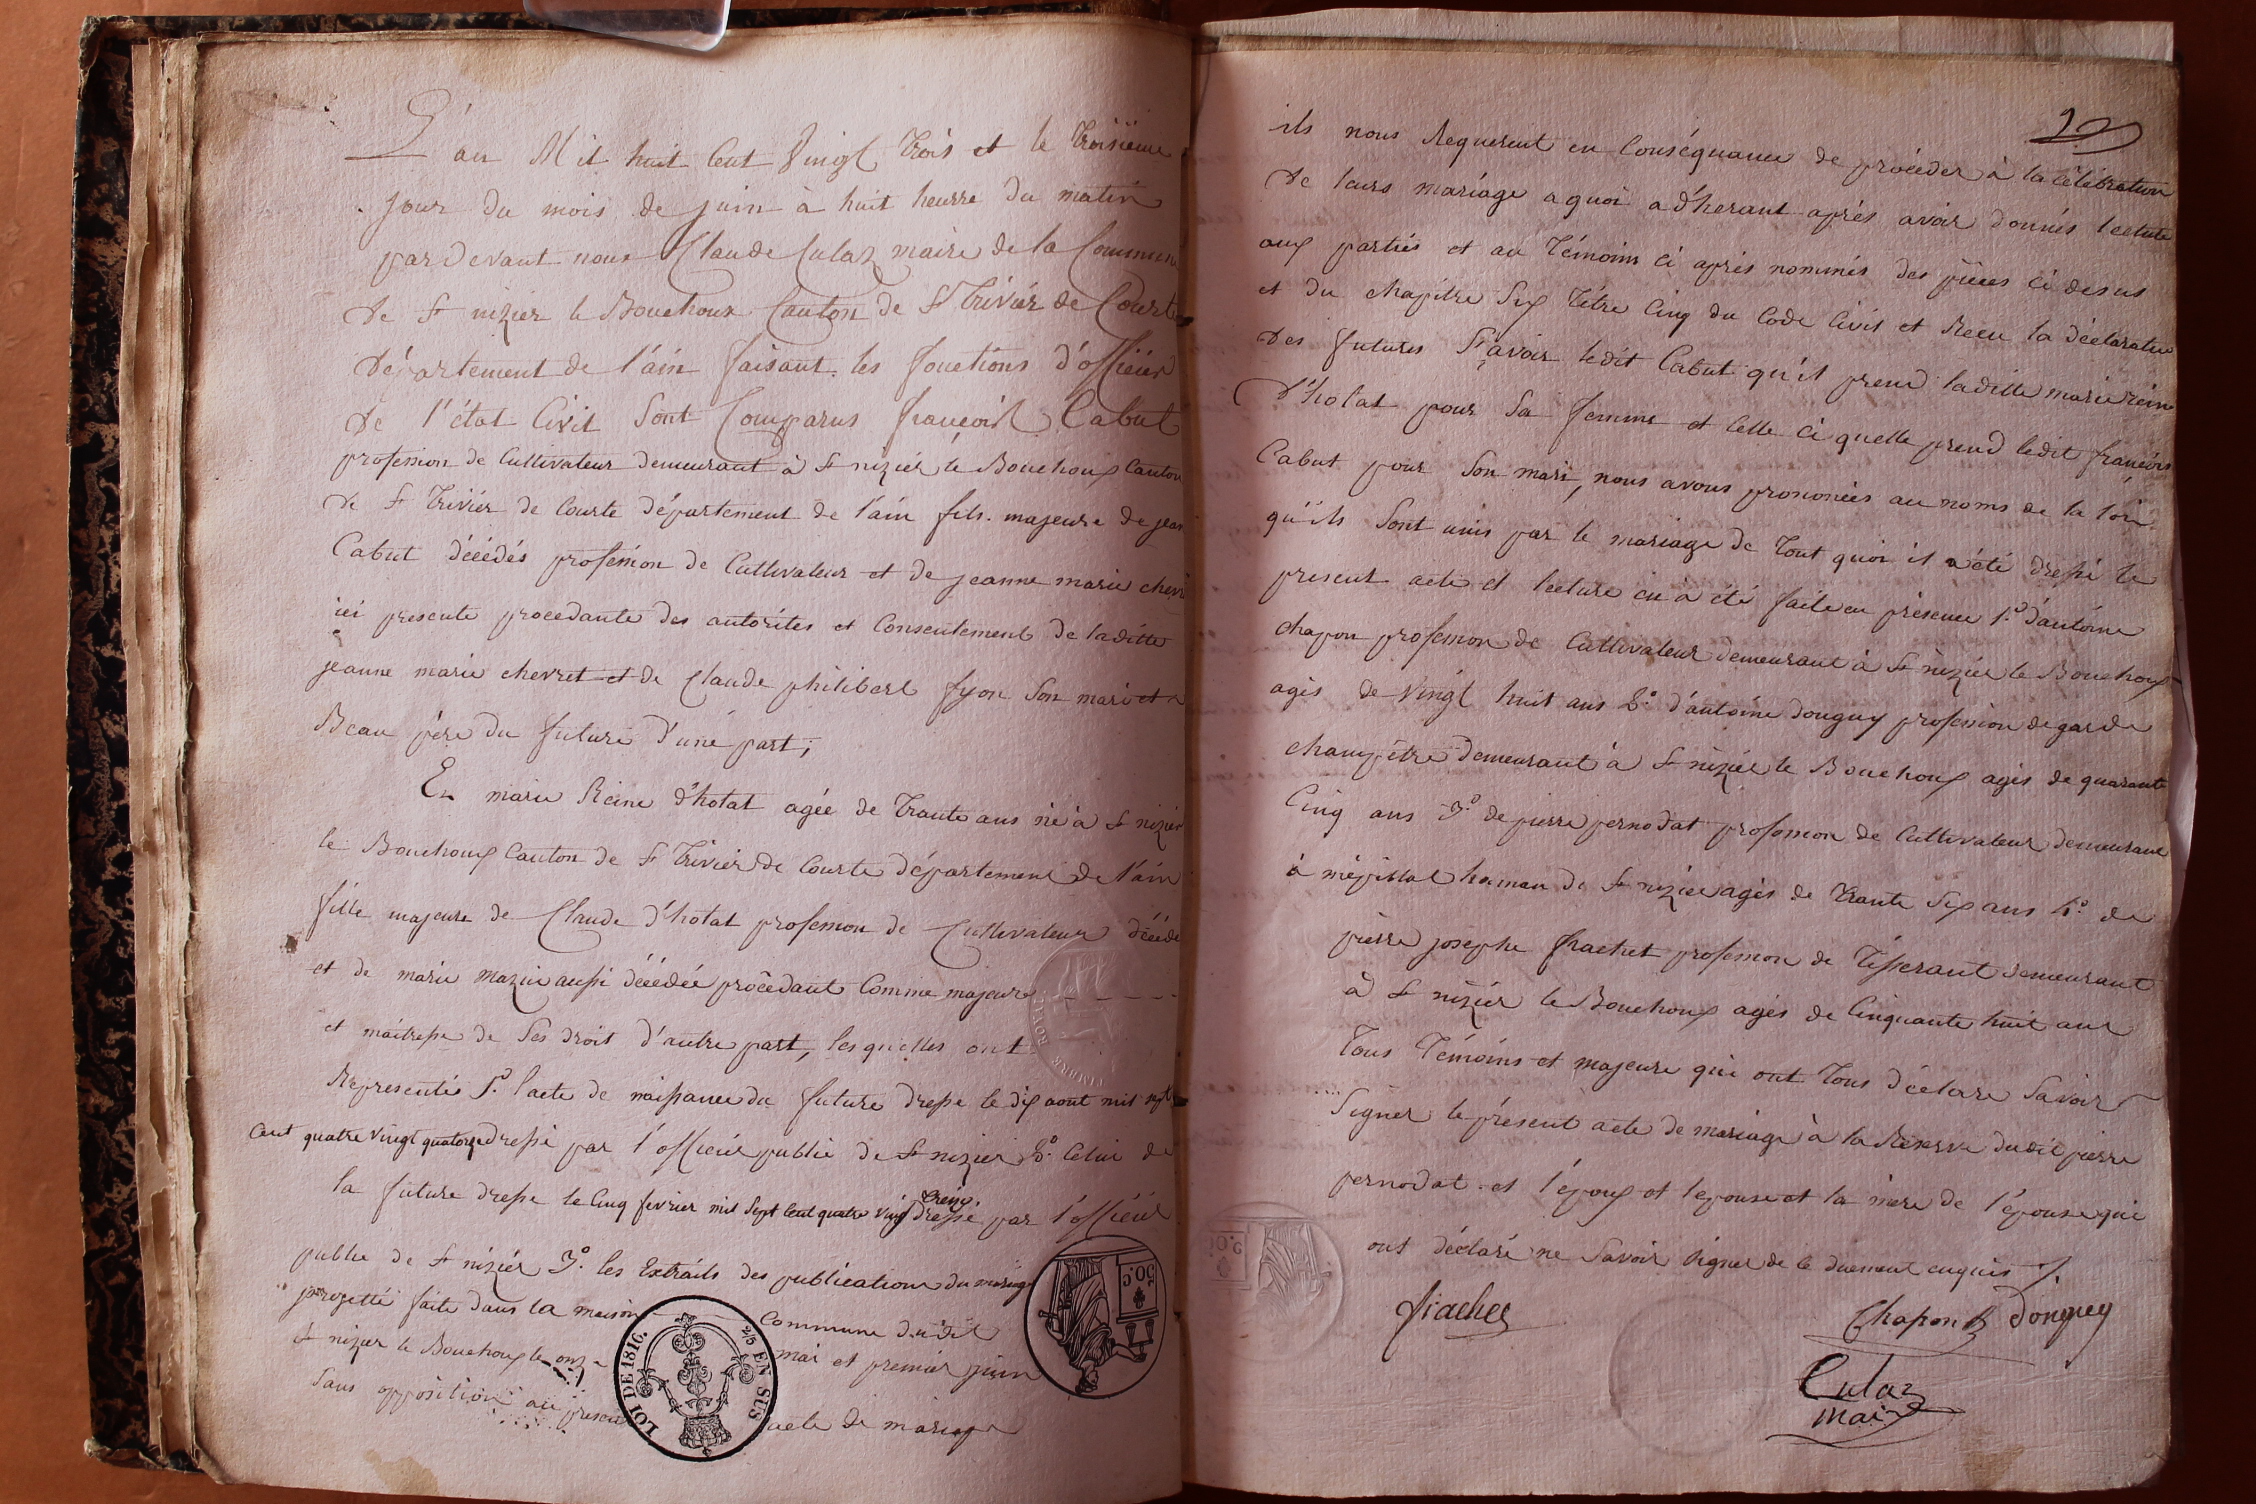 L'an Mil huit Cent Vingt trois et le troisieme
jour du mois de juin à huit heurre du matin
pardevant nous Claude Culaz maire de la Commune
de St nizier le Bouchoux Canton de St Trivier de Courte
département de l'ain faisant les fonctions d'officier
de l'état Civil Sont Comparus françois Cabut
profession de Cultivateur demeurant à St nizier le Bouchoux Canton
de St Trivier de Courte département de l'ain fils majeure de jean
Cabut décédés profession de Cultivateur et de jeanne marie chevret
ici presente procedante des autorités et Consentement de laditte
jeanne marie chevret et de Claude philibert fyon Son mari et
Beau père du future d'une part;
Et marie Reine d'hotat agée de trante ans né à St nizier
le Bouchoux Canton de St Trivier de Courte département de l'ain
fille majeure de Claude d'hotat profession de Cultivateur décédé
et de marie mazui aussi décédée procédant Comme majeure
et maitresse de Ses droit d'autre part, lesquelles ont
Représentés 1° l'acte de naissance du future dressé le dix aout mil sept
cent quatre vingt quatorze dressé par l'officier public de St nizier 2° Celui de
la future dresse le Cinq fevrier mil Sept Cent quatre vingt treize dressé par l'officier
public de St nizier 3° les Extraits des publications du mariage
projetté faite dans la maison Commune dudit
St nizier le Bouchoux le onze mai et premier juin
Sans opposition au présent acte de mariage
TIMBRE ROYAL
LOI DE 1816.
2/5 EN SUS
50 c.
ils nous Requerent en Conséquance de procéder à la célébration
de leurs mariage a quoi adherant après avoir donnés lecture
aux parties et au témoins ci après nommés des pièces ci desus
et du chapitre Six titre Cinq du Code Civil et Recu la déclaration
des futures Sçavoir ledit Cabut qu'il prend laditte marie reine
d'hotat pour Sa femme et Celle ci quelle prend ledit françois
Cabut pour Son mari, nous avons prononcés au noms de la loi
qu'ils Sont unis par le mariage de tout quoi il a été dressé le
present acte et lecture en à été faite en présence 1° d'antoine
chapon profession de Cultivateur demeurant à St nizier le Bouchoux
agés de Vingt huit ans 2° d'antoine donguy profession de garde
champêtre demeurant à St nizier le Bouchoux agés de quarante
Cinq ans 3° de pierre pernodat profession de Cultivateur demeurant
à mépillat hameau de St nizier agés de trante Six ans 4° de
pierre josephe frachet profession de tisserant demeurant
à St nizier le Bouchoux agés de Cinquante huit ans
tous témoins et majeure qui ont tous déclare Savoir
Signer le présent acte de mariage à la Réserve dudit pierre
pernodat et l'époux et lepouse et la mère de l'épouse qui
ont déclaré ne Savoir Signer de ce duement enquis
Chapon Donguy
Culaz
Maire